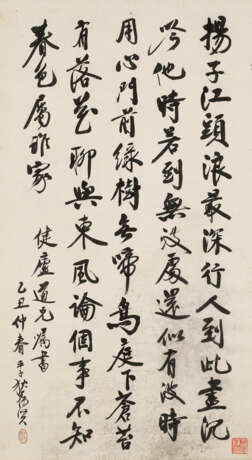 揚子江頭浪最深行人到此盡沉
吟他時若到無波處還似有波時
用心門前綠樹無啼鳥庭下蒼苔
有落花聊與東風論個事不知
春色屬誰家
健廬道兄囑書
乙丑仲春平子狄葆賢